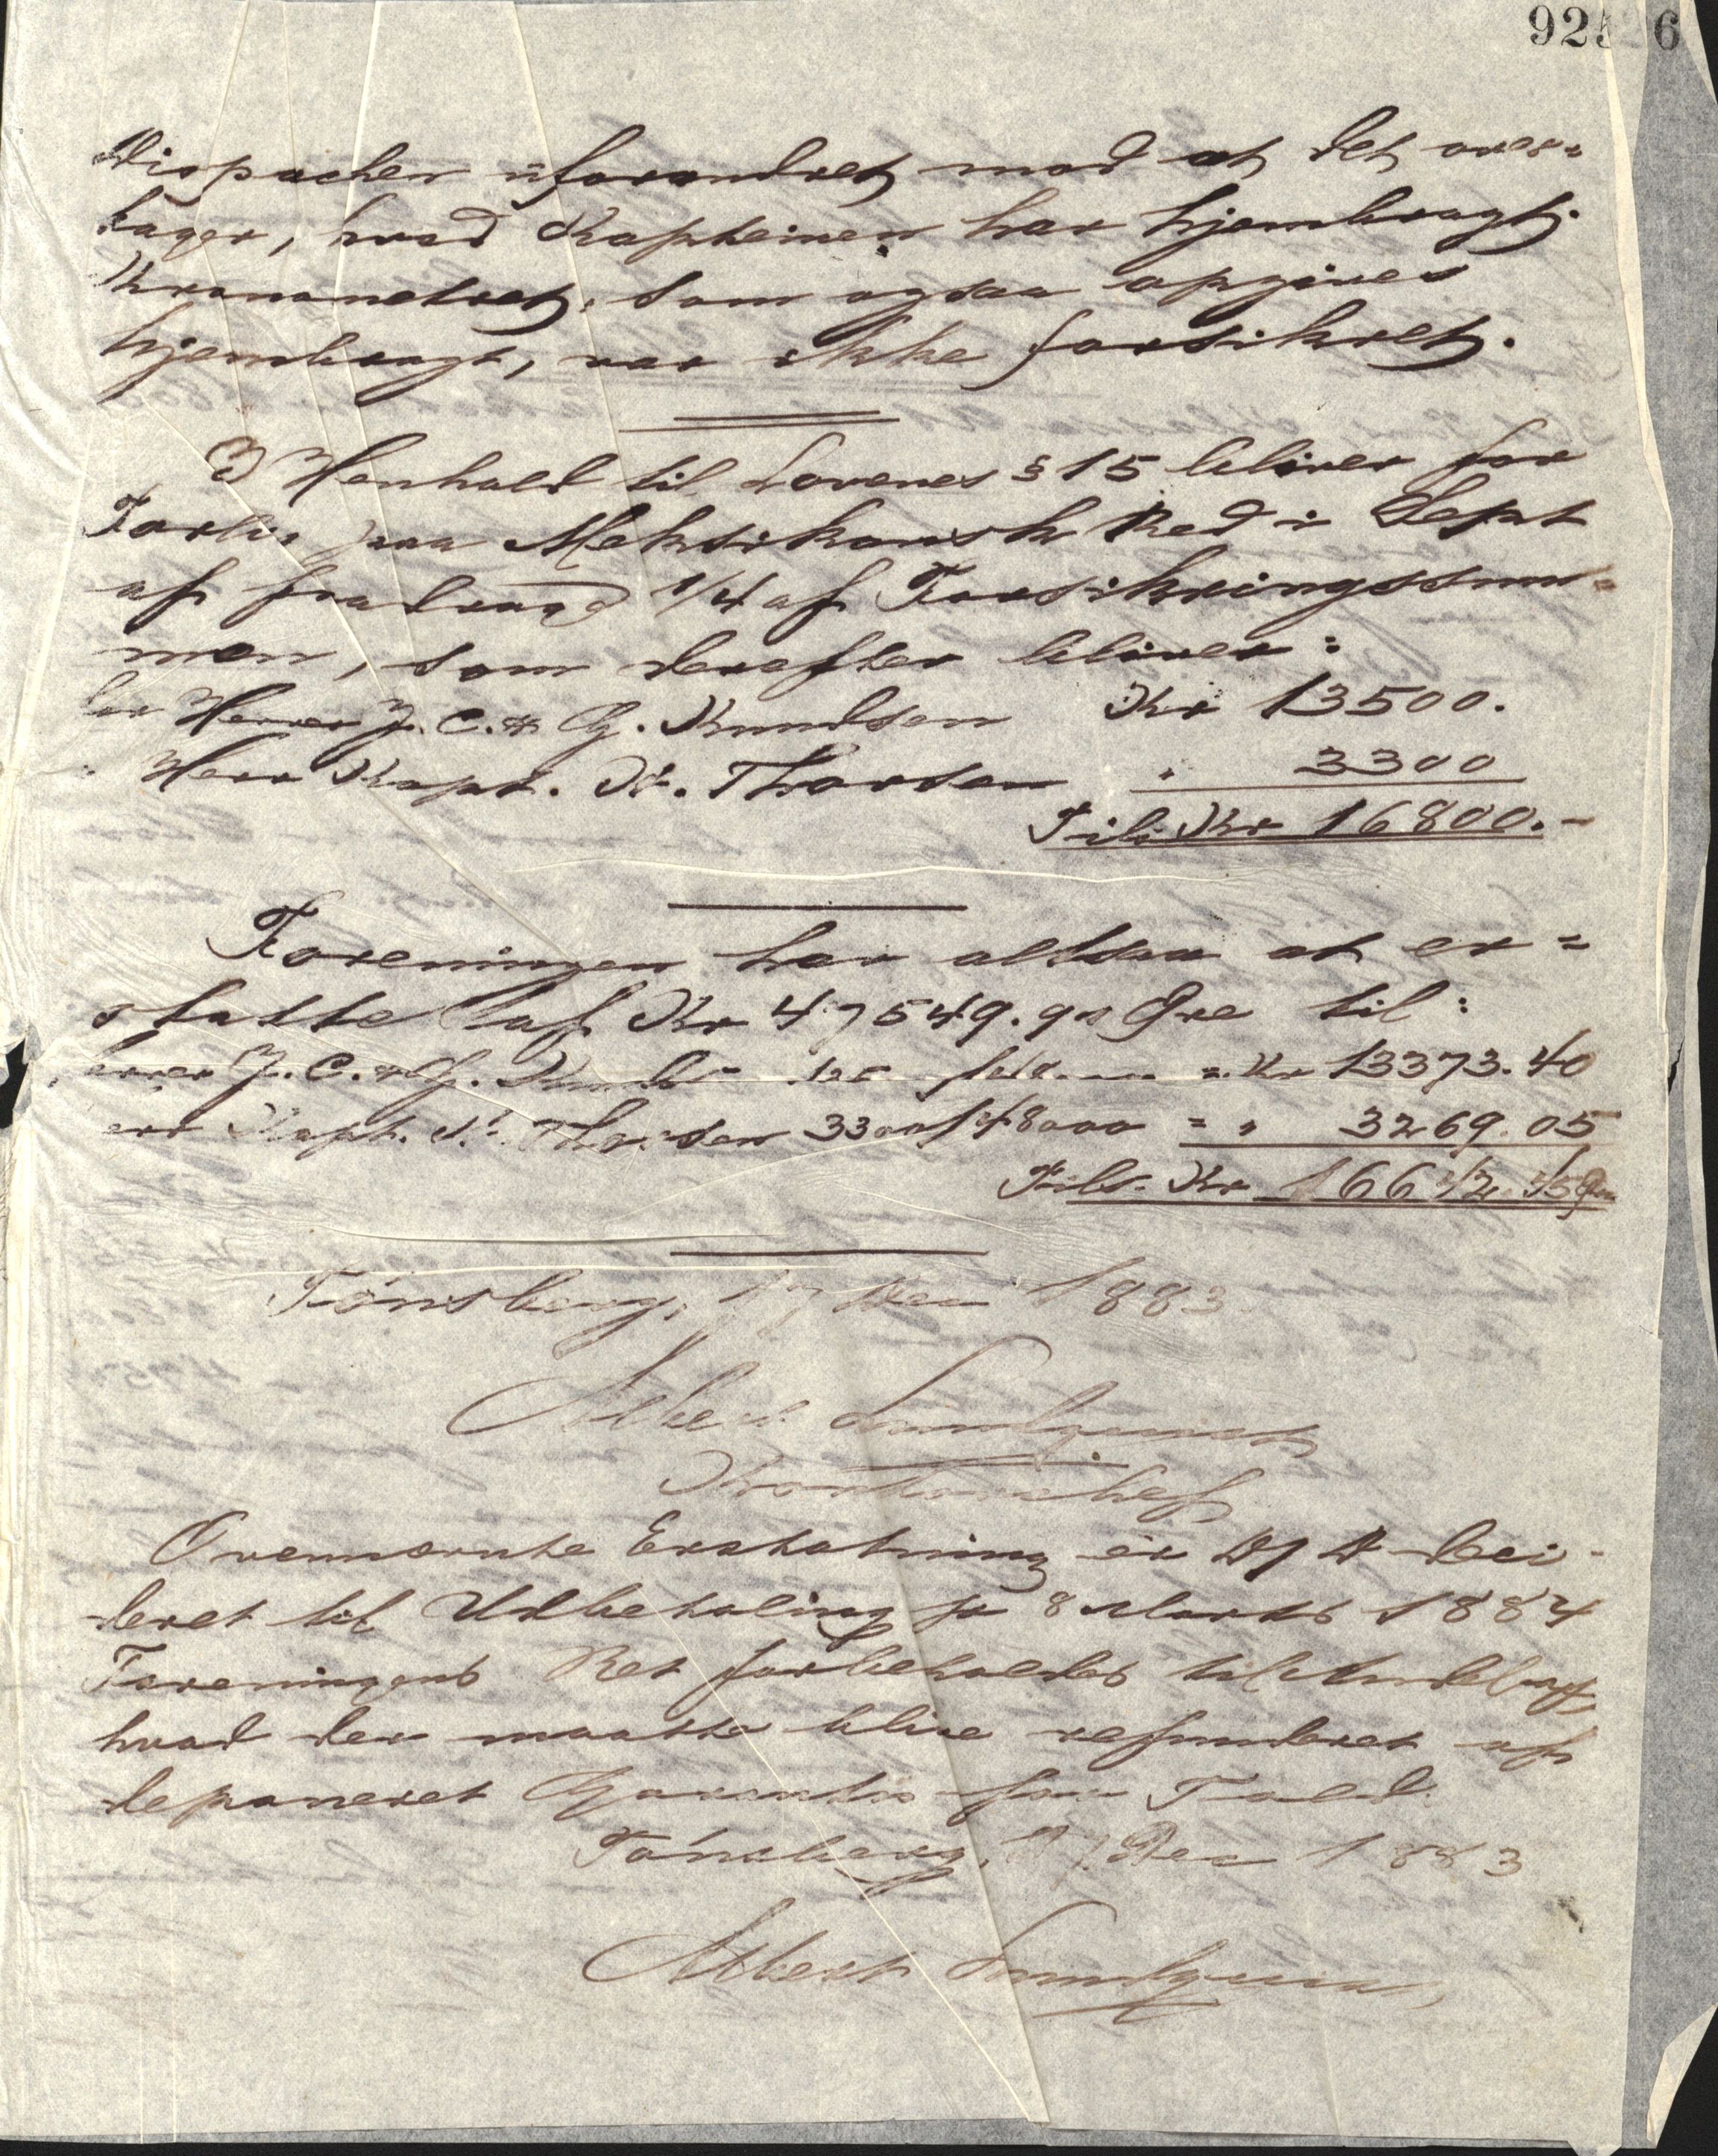 92526
Dispachen uforandret mod at det over=
tager, hvad Kapteinen har hjembragt.
Kronometret, som ogsaa opgives
hjembragt, var ikke forsikret.
I Henhold til Lovenes § 15 bliver for
Forlis paa Meksikansk Red i Sept
af fradraget 1/4 af Forsikringssum=
men, som derefter bliver:
for Herrer J. C. & G. Knudsen Kr 13500.
" Herr Kapt. N. Thorsen " 3300
Tils. Kr 16800.-
Foreningen har altsaa at er=
statte af Kr 47549.90 Øre til:
Herrer J. C. & G. = Kr 13373.40
Herr Kapt. N. Thorsen 3300/48000 = " 3269.05
Tils. Kr 16642.45 Øre
Tönsberg, 17 Dec 1883
Albert Lundquist
Kontorchef
Ovennævnte Erstatning er D/D
til Udbetaling pr 8 Marts 1884
Foreningens Ret forbeholdes til Andel af,
hvad der maatte blive refunderet af
deponeret Garanti for Told.
Tönsberg, 17 Dec 1883
Albert Lundquist